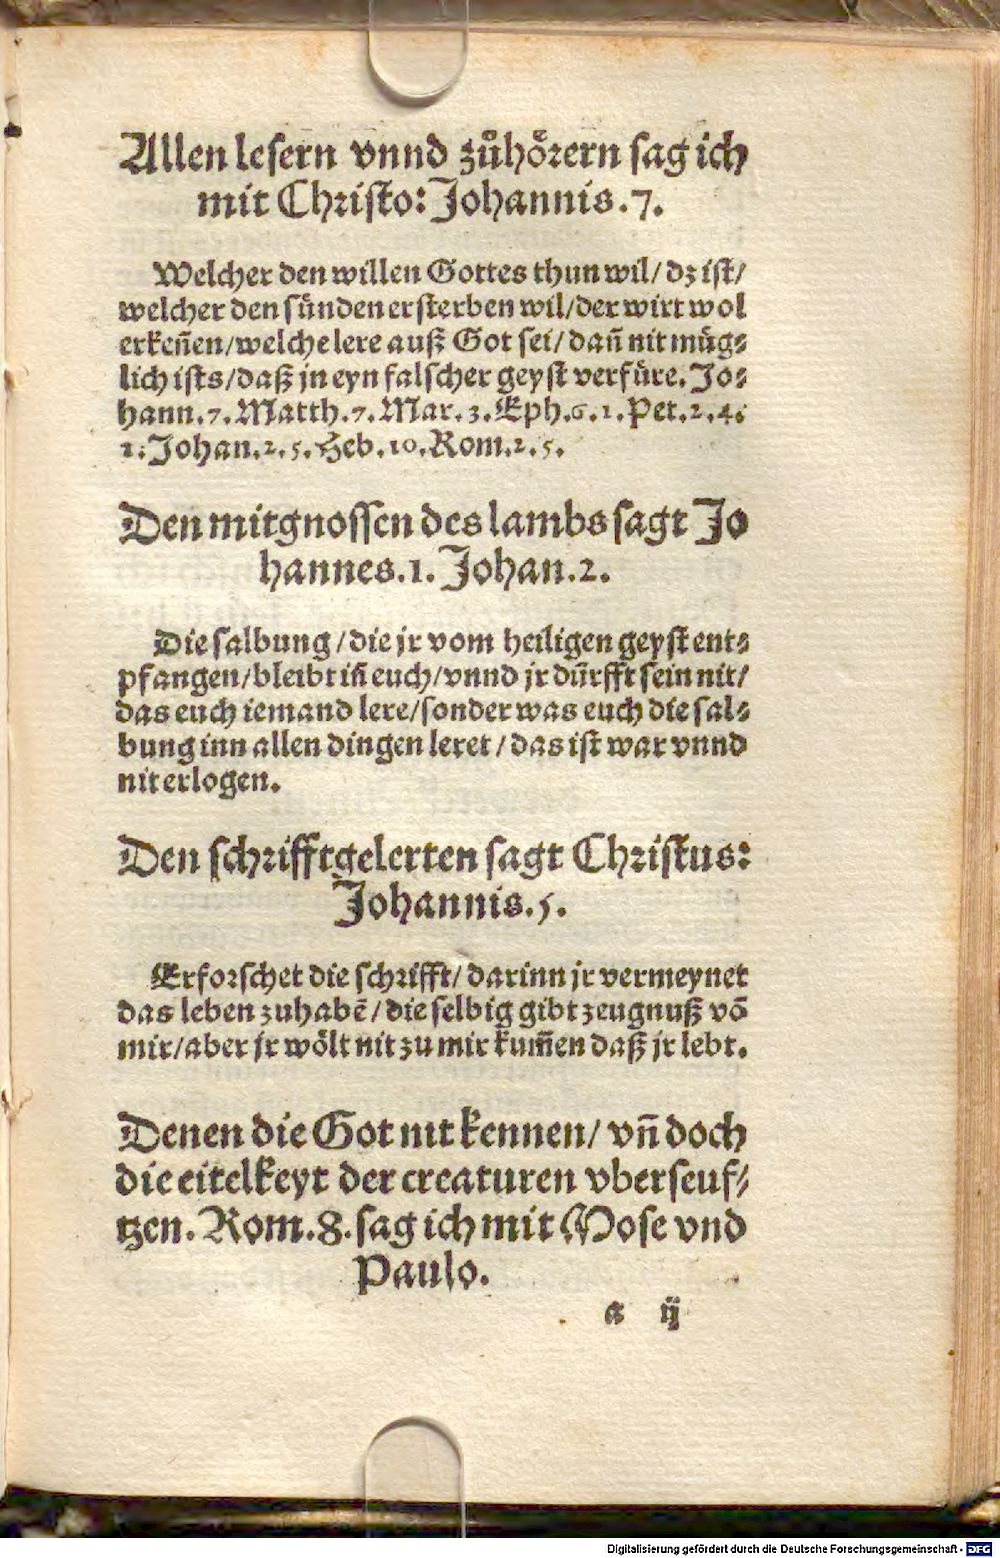 Allen lesern vnnd zůhoͤrern sag ich
mit Christo: Johannis.7.
Welcher den willen Gottes thun wil/ dz ist/
welcher den sünden ersterben wil/der wirt wol
erkeñen/welche lere auß Got sei/ dañ nit müg⸗
lich ists/daß jn eyn falscher geyst verfüre. Jo⸗
hann.7. Matth.7. Mar.3. Eph.6.1.Pet.2.4.
1. Johan.2.5. Heb.10. Rom.2.5.
Den mitgnossen des lambs sagt Jo
hannes.1. Johan.2.
Die salbung/die jr vom heiligen geyst ent⸗
pfangen/bleibt iñ euch/vnnd jr dürfft sein nit/
das euch iemand lere/sonder was euch die sal⸗
bung inn allen dingen leret/das ist war vnnd
nit erlogen.
Den schrifftgelerten sagt Christus:
Johannis.5.
Erforschet die schrifft/darinn jr vermeynet
das leben zuhabē/die selbig gibt zeugnuß vō
mir/aber jr woͤlt nit zu mir kum̄en daß jr lebt.
Denen die Got nit kennen/ vñ doch
die eitelkeyt der creaturen vberseuf⸗
tzen. Rom.8. sag ich mit Mose vnd
Paulo.
a ij
Digitalisierung gefördert durch die Deutsche Forschungsgemeinschaft - DFG